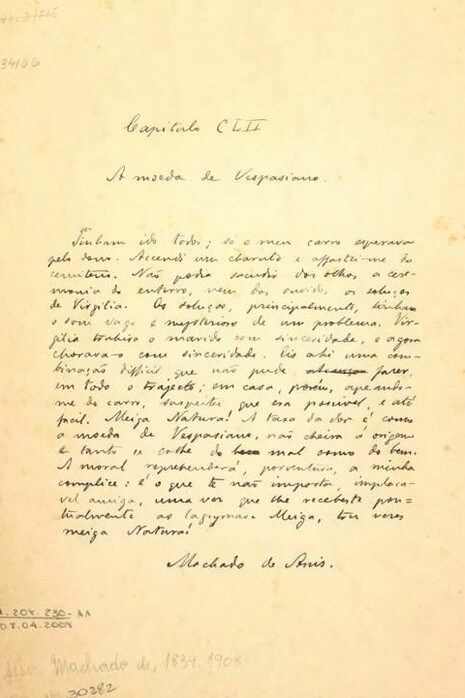 3410,6
Capitulo CLII
A moeda de Vespasiano.
Tinham ido todos; só o meu carro esperava
pelo dono. Accendi um charuto e affastei-me do
cemiterio. Não podia sacudir dos olhos a cere-
monia do enterro, nem dos ouvidos os soluços
de Virgilia. Os soluços, principalmente, tinham
o som vago e mysterioso de um problema. Vir-
gilia trahira o marido com sinceridade, e agora
chorava-o com sinceridade. Eis ahi uma com-
binação difficil que não pude fazer
em todo o trajecto; em casa, porém, apeando-
me do carro, suspeitei que era possivel, e até
facil. Meiga Natura! A taxa da dor é como
a moeda de Vespasiano, não cheira á origem
e tanto se colhe do mal como do bem.
A moral reprehenderá, porventura, a minha
complice: é o que te não importa, implaca-
vel amiga, uma vez que lhe recebeste pon-
tualmente as lagrymas. Meiga, tres vezes
meiga Natura!
Machado de Assis.
1.204.230-AA
07.04.2004
Machado de, 1839-1908
30282